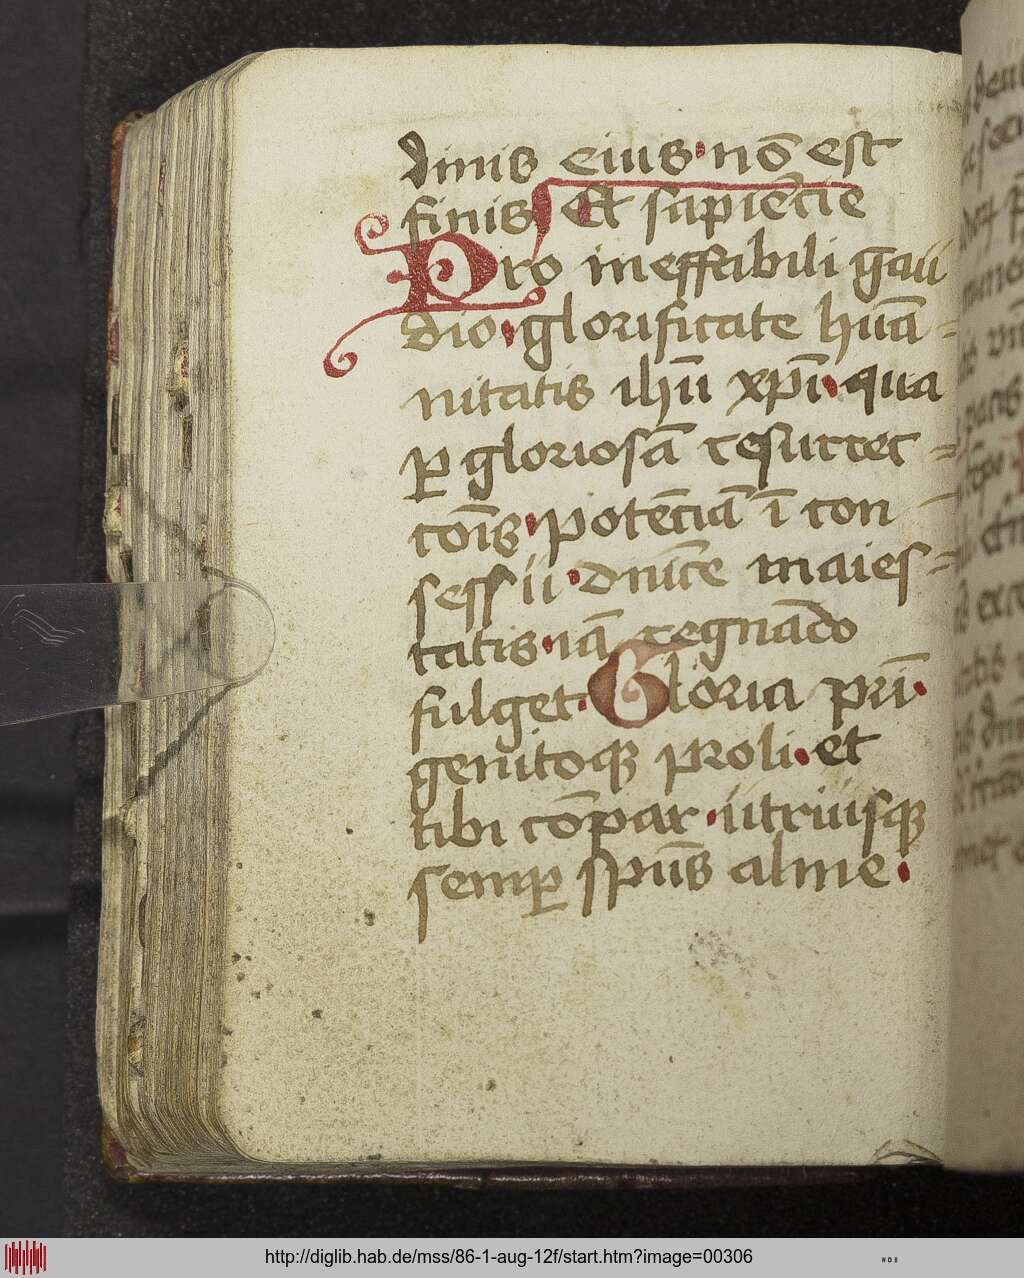 dinis eius · nō est
finis Et sapiēcie
Pro ineffabili gau
dio · glorificate huā-
nitatis ihū xp̄i · qua
ꝑ gloriosā resurrec=
cōis · potēciā ī con-
sessu · dnīce maies=
tatis · iā regnādo
fulget · Gloria pri ·
genitoqꝫ proli · et
tibi cōpar · utriusqꝫ
semꝑ spūs alme ·
http://diglib.hab.de/mss/86-1-aug-12f/start.htm?image=00306